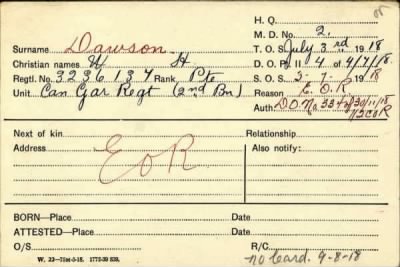 H. Q.
M. D. No. 2.
Surname Dawson
T. O. S. July 3rd 1918
Christian names W H
D. O. Pt II 4 of 4/7/18
Regtl. No. 3236137 Rank Pte
S. O. S. 5-7- 1918
Unit Can Gar Regt (2nd Bn)
Reason E.O.R
Auth D.O. No 334 30/11/18
Next of kin
Relationship
Address
Also notify:
EOR
BORN—Place Date
ATTESTED—Place Date
O/S R/C
No Card. 9-8-18
W. 23—75M-5-18. 1772-39 839.